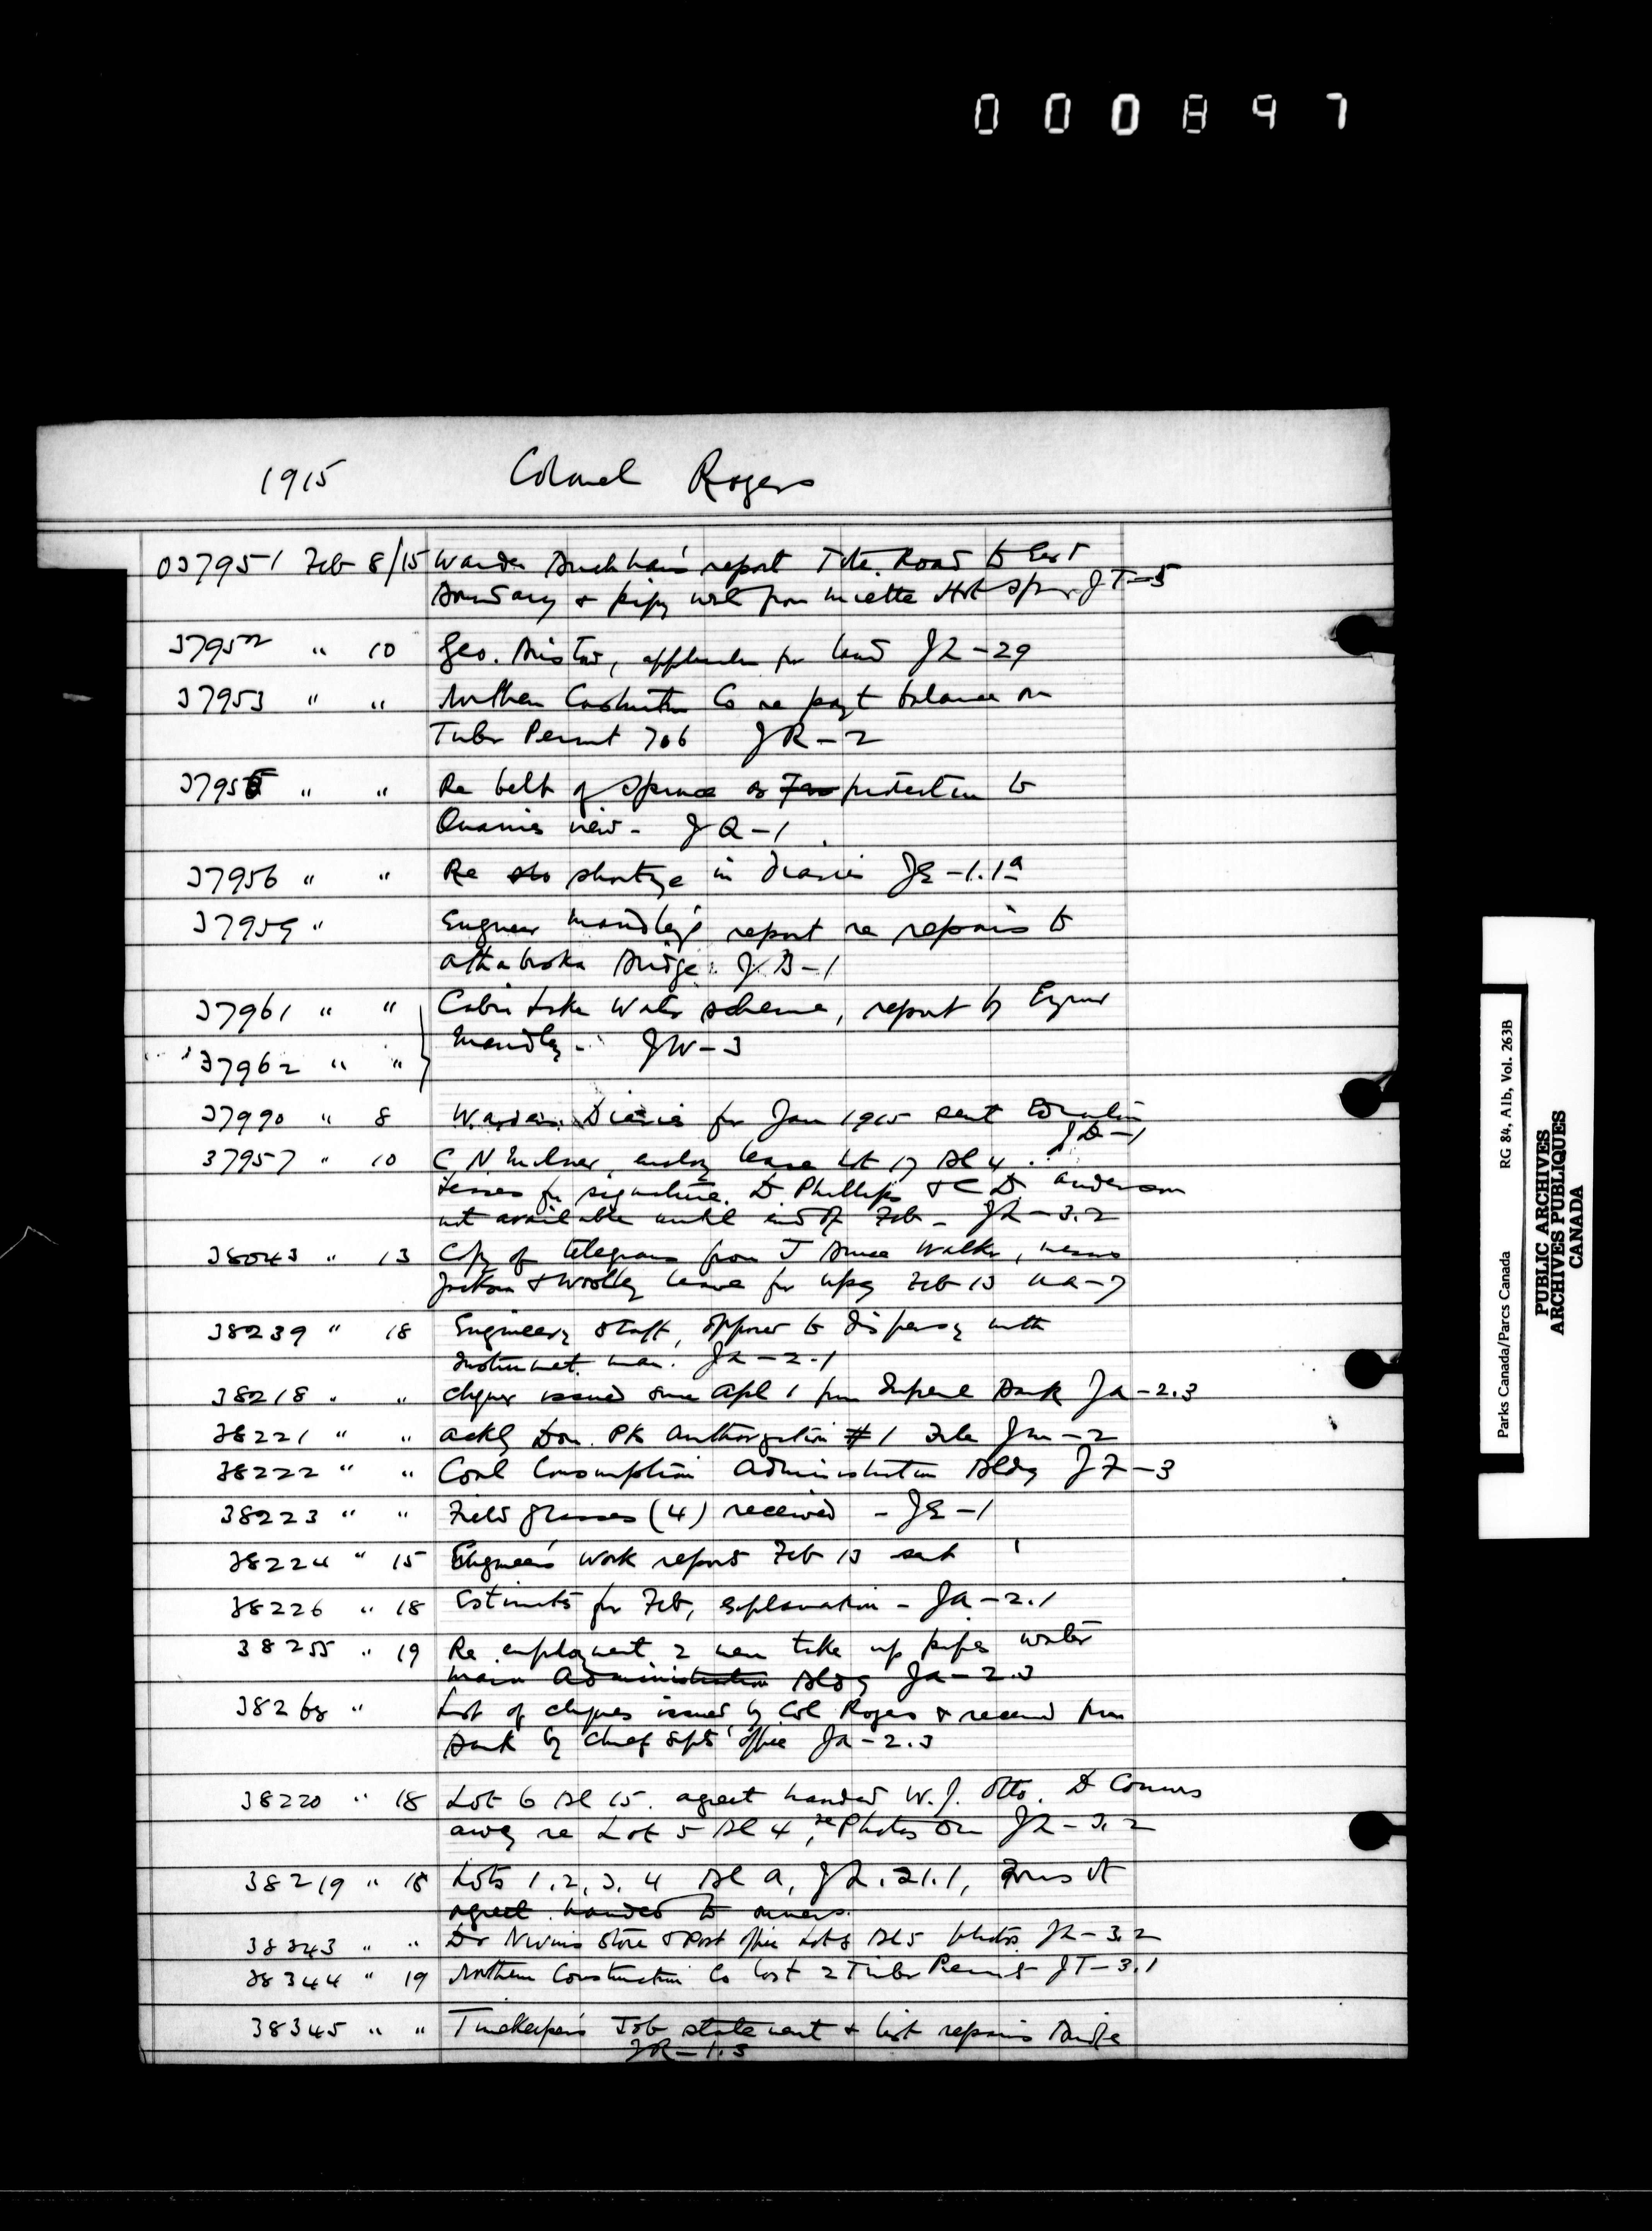 000897
1915 Colonel Rogers
037951 Feb 8/15 Warden report Tote Road to East
Boundary & from Miette Hot JT-5
37952 " 10 Geo. for land JL-29
37953 " " Northern Co re payt balance on
Timber Permit 706 JR-2
37955 " " Re belt of Spruce as protection to
Quarries view - JQ-1
37956 " " Re shortage in JE-1.1a
37959 " Engineer report re repairs to
Athabaska Bridge. JB-1
37961 " " Cabin Lake Water scheme, report by Engineer
37962 " " JW-3
37990 " 8 Warden Diaries for Jan 1915 sent
JD-1
37957 " 10 C. N. lease Lot 17 Bl 4
for signature. D. Phillips & C D. Anderson
not available until end of Feb - JL-3.2
38043 " 13 Copy of telegram from J Bruce Walker,
& Woolley leave for Feb 13
38239 " 18 Engineer's staff, opposed to dispensing with
Instrument man. JA-2.1
38218 " " cheques issued since Apl 1 from Imperial Bank JA-2.3
38221 " " Dom. Pk Authorization #1 JM-2
38222 " " Coal Consumption Administration Bldg JF-3
38223 " " Field glasses (4) received - JE-1
38224 " 15 Engineer's work report Feb 13 sent
38226 " 18 Estimates for Feb, explanation - JA-2.1
38255 " 19 Re employment 2 men take up pipes water
main Administration Bldg JA-2.3
38268 " List of cheques issued by Col Rogers & received from
Bank by Chief Supts' office JA-2.3
38220 " 18 Lot 6 Bl 15. agreet handed W. J. Otto. D Connors
away re Lot 5 Bl 4, re Photos on JL-3.2
38219 " 18 Lots 1.2.3.4 Bl A, JL.21.1,
agreet handed to owners.
38343 " " store & Post office Lot 8 Bl 5 photos JL-3.2
38344 " 19 Northern Construction Co lost 2 Timber Permits JT-3.1
38345 " " Timekeeper's Job statement & list repairs Bridge
JR-1.3
Parks Canada/Parcs Canada RG 84, A1b, Vol. 263B
PUBLIC ARCHIVES
ARCHIVES PUBLIQUES
CANADA